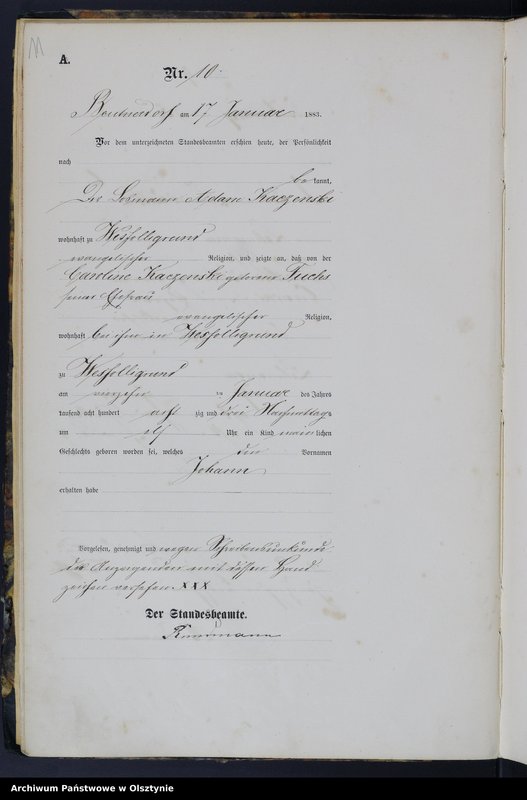 A.
Nr. 10
am 17 Januar 1883.
Vor dem unterzeichneten Standesbeamten erschien heute, der Persönlichkeit
nach
be kannt,
Der Losmann Adam Kaczenski
wohnhaft zu
evangelischer Religion, und zeigte an, daß von der
Caroline Kaczenski geborene Fuchs
seiner Ehefrau
evangelischer Religion,
wohnhaft bei ihm in
zu
am Januar des Jahres
tausend acht hundert acht zig und drei Nachmittags
um elf Uhr ein Kind männlichen
Geschlechts geboren worden sei, welches den Vornamen
Johann
erhalten habe
Vorgelesen, genehmigt und wegen Schreibensunkunde
des Anzeigenden mit dessen Hand
zeichen versehen XXX
Der Standesbeamte.
Archiwum Państwowe w Olsztynie